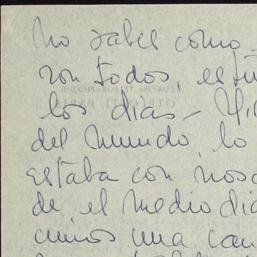 no sabes como
ron todos, estu
los dias -
del mundo, lo
estaba con noso
de, el medio dia
cimos una can